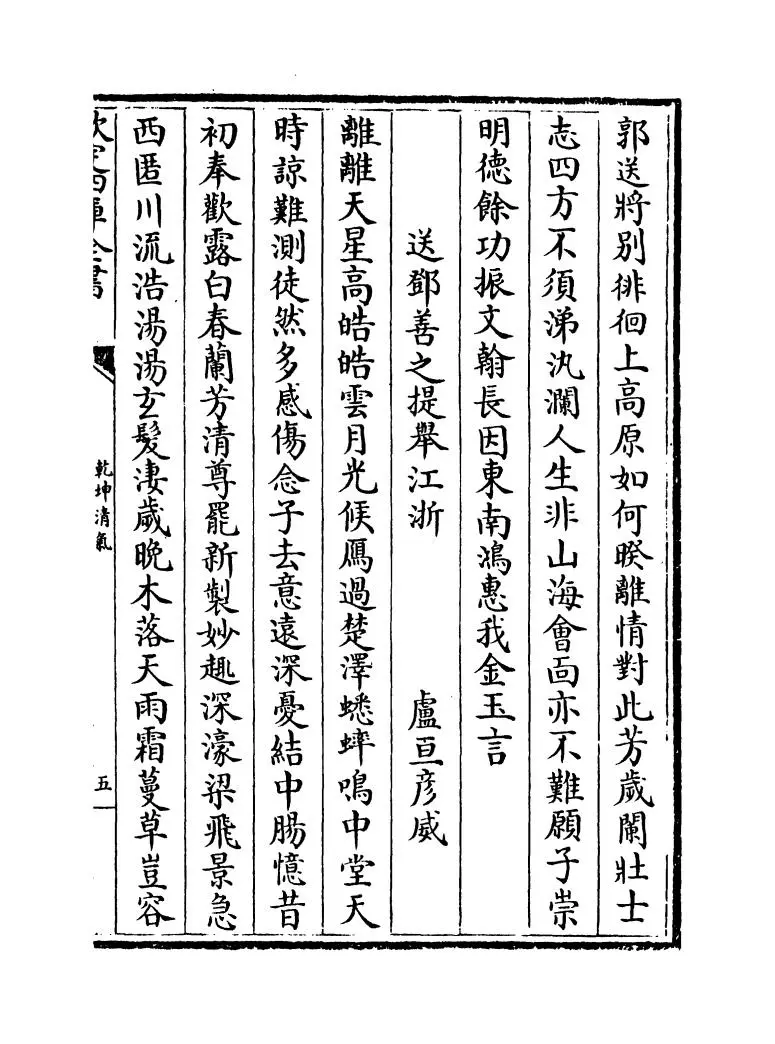 郭送將别徘徊上高原如何暌離情對此芳歲闌壯士
志四方不須涕汍瀾人生非山海會面亦不難願子崇
明德餘功振文翰長因東南鴻惠我金玉言
送鄧善之提舉江浙　盧亘彦威
離離天星高皓皓雲月光候鴈過楚澤蟋蟀鳴中堂天
時諒難測徒然多感傷念子去意遠深憂結中腸憶昔
初奉歡露白春蘭芳清尊罷新製妙趣深濠梁飛景急
西匿川流浩湯湯玄髮淒歲晚木落天雨霜蔓草豈容
欽定四庫全書
乾坤清氣
五